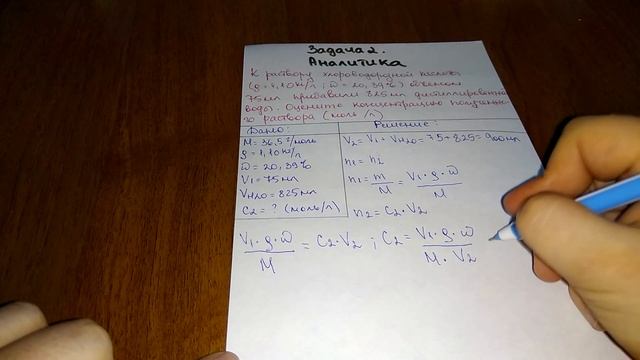 Задача 2.
Аналитика
К раствору хлороводородной кислоты
(ρ = 1,10 кг/л ; ω = 20,39%) объёмом
75 мл прибавили 825 мл дистиллированной
воды. Оцените концентрацию полученно-
го раствора (моль/л)
Дано:
M = 36,5 г/моль
ρ = 1,10 кг/л
ω = 20,39%
V1 = 75 мл
VH2O = 825 мл
C2 = ? (моль/л)
Решение:
V2 = V1 + VH2O = 75 + 825 = 900 мл
n2 = n1
n1 = m/M = V1·ρ·ω/M
n2 = C2·V2
V1·ρ·ω/M = C2·V2 ; C2 = V1·ρ·ω/M·V2